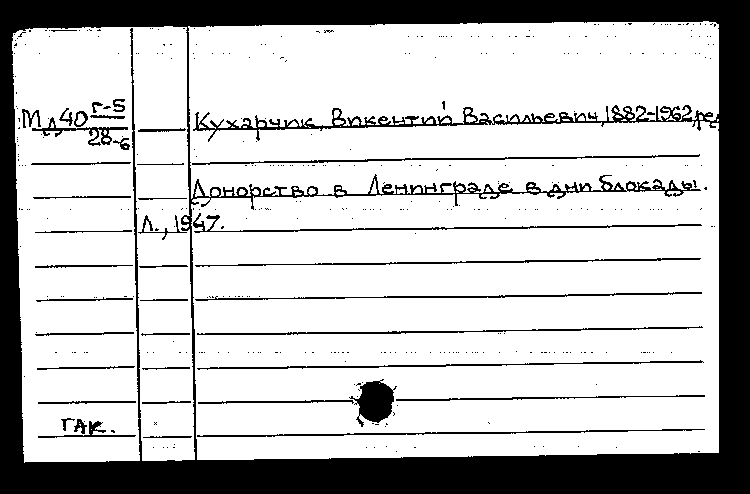 Мд40 г-5
28-6
Кухарчик, Викентий Васильевич, 1882-1962 ред
Донорство в Ленинграде в дни блокады.
Л., 1947.
ГАК.